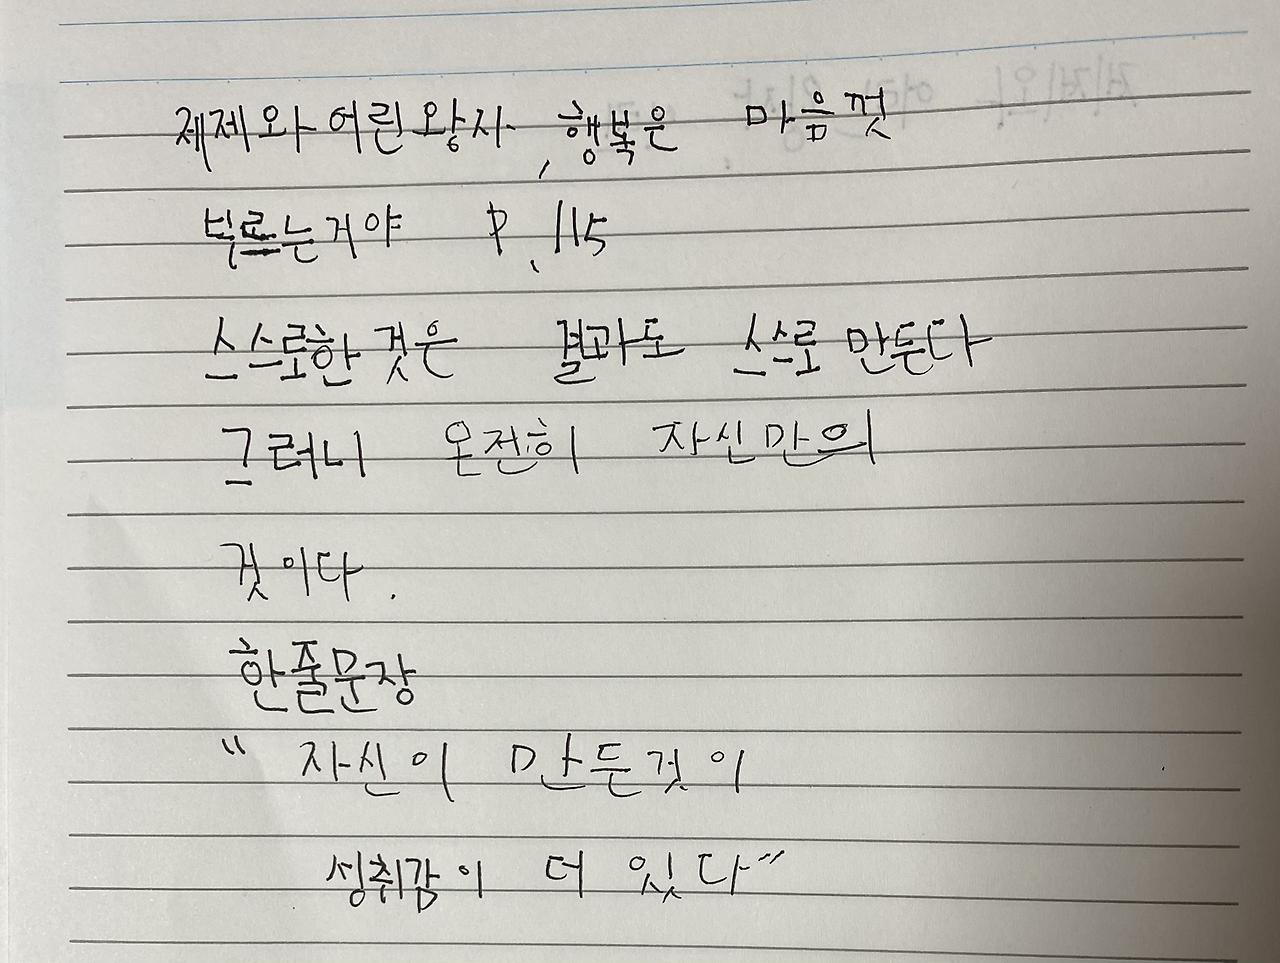 제제와 어린왕자, 행복은 마음껏
부르는거야 P. 115
스스로한 것은 결과도 스스로 만든다
그러니 온전히 자신만의
것이다.
한줄문장
" 자신이 만든것이
성취감이 더 있다"